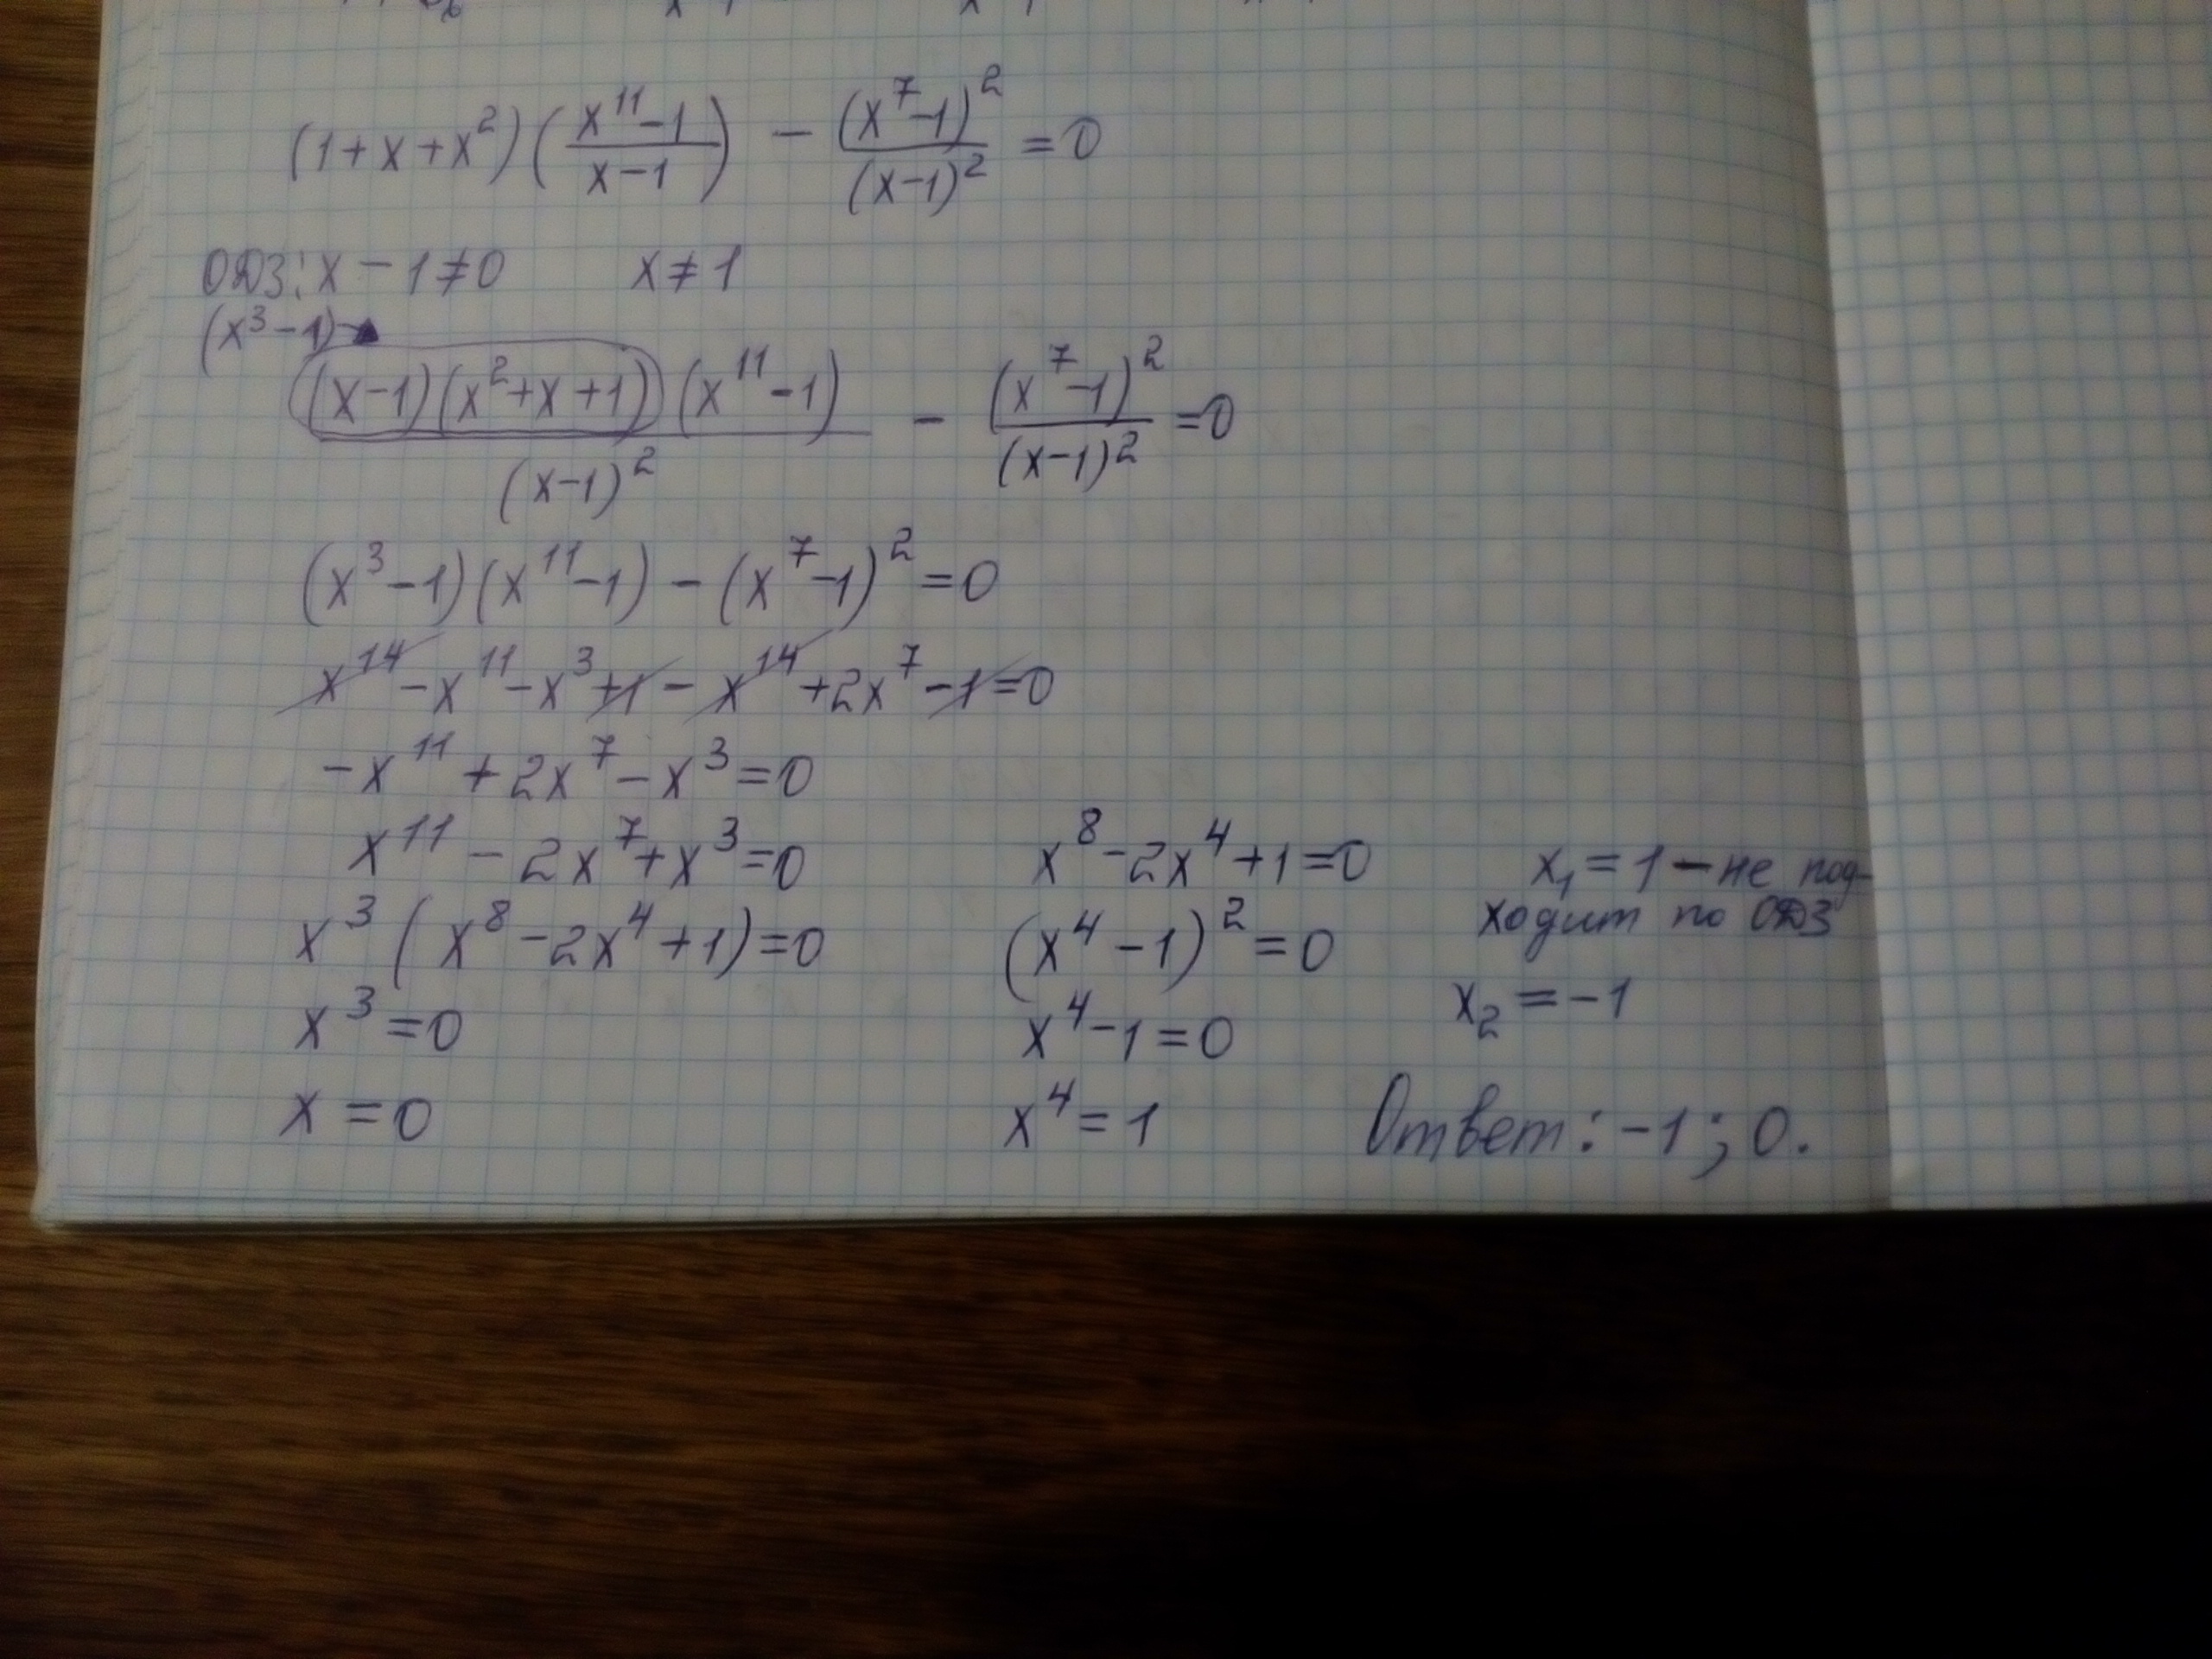 (1+x+x²)((x¹¹-1)/(x-1)) - (x⁷-1)²/(x-1)² =0
ОДЗ: x-1≠0 x≠1
(x³-1)
(x-1)(x²+x+1)(x¹¹-1)/(x-1)² - (x⁷-1)²/(x-1)² =0
(x³-1)(x¹¹-1) - (x⁷-1)²=0
x¹⁴-x¹¹-x³+1-x¹⁴+2x⁷-1=0
-x¹¹+2x⁷-x³=0
x¹¹-2x⁷+x³=0
x³(x⁸-2x⁴+1)=0
x³=0
x=0
x⁸-2x⁴+1=0
(x⁴-1)²=0
x⁴-1=0
x⁴=1
x₁=1-не под-
ходит по ОДЗ
x₂=-1
Ответ: -1; 0.